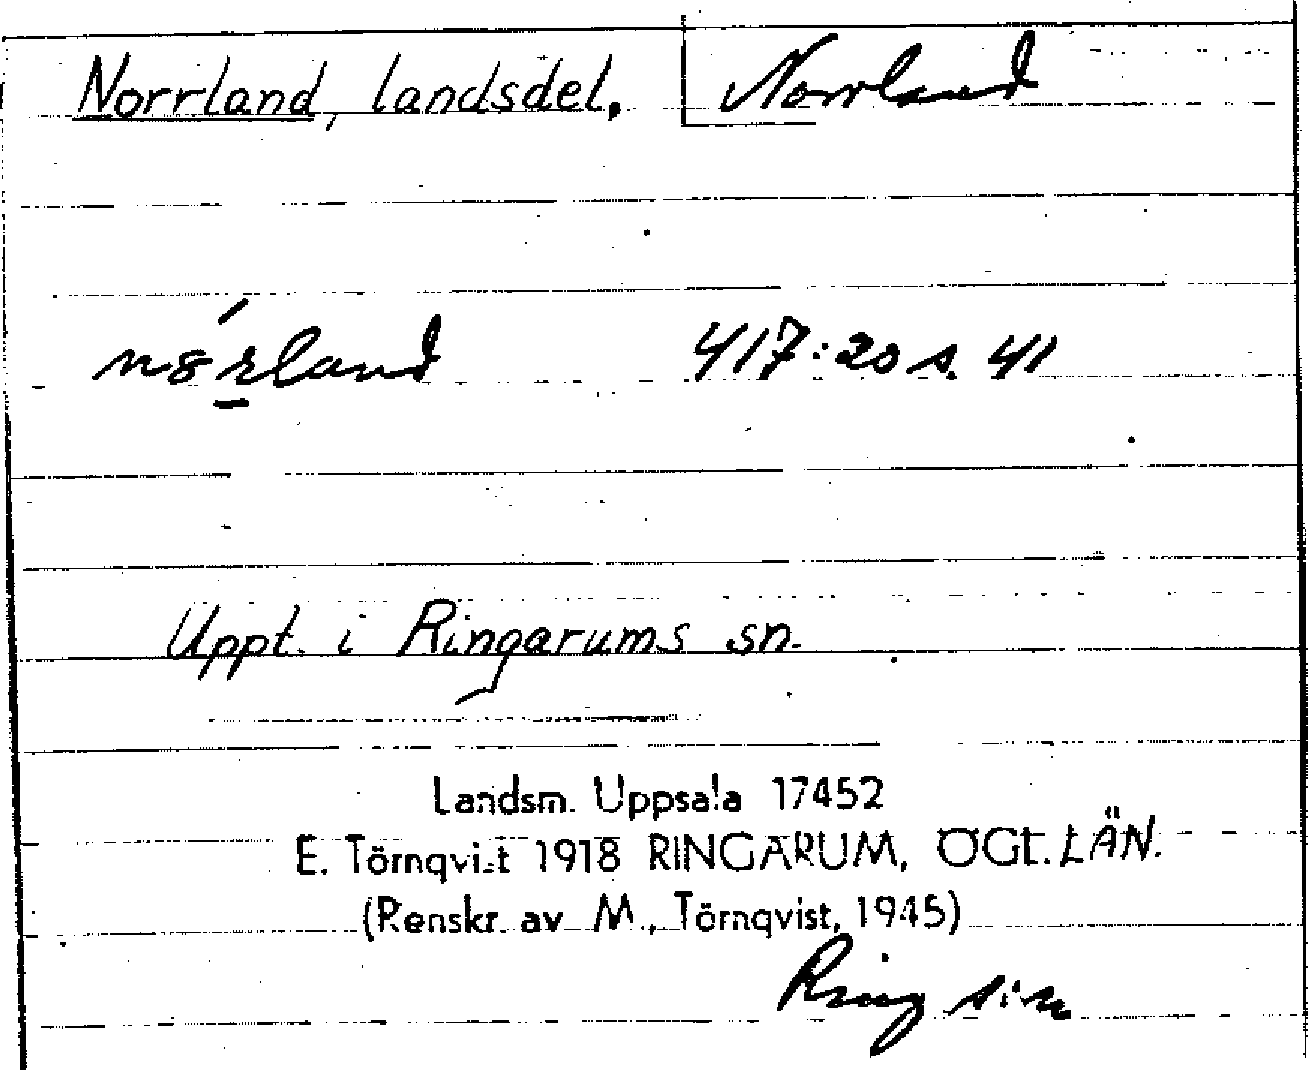 Norrland, landsdel. Norrland
n8́rland 417:20 s. 41
Uppt. i Ringarums sn.
Landsm. Uppsala 17452
E. Törnqvist 1918 RINGARUM, ÖGL. LÄN.
(Renskr. av M. Törnqvist, 1945)
Ring